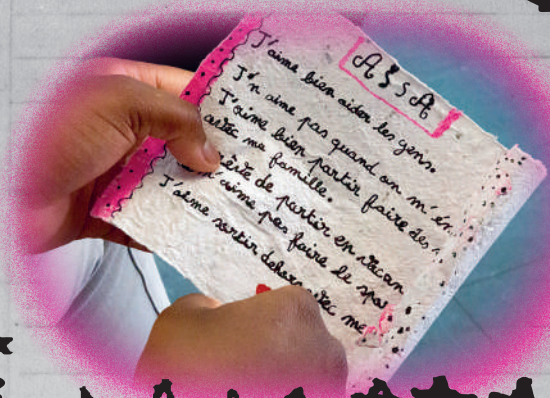 ASSA
J'aime bien aider les gens.
J'n aime pas quand on
J'aime bien partir faire des
avec ma famille.
de partir en vacan
aime pas faire le spo
J'aime sortir dehors avec me